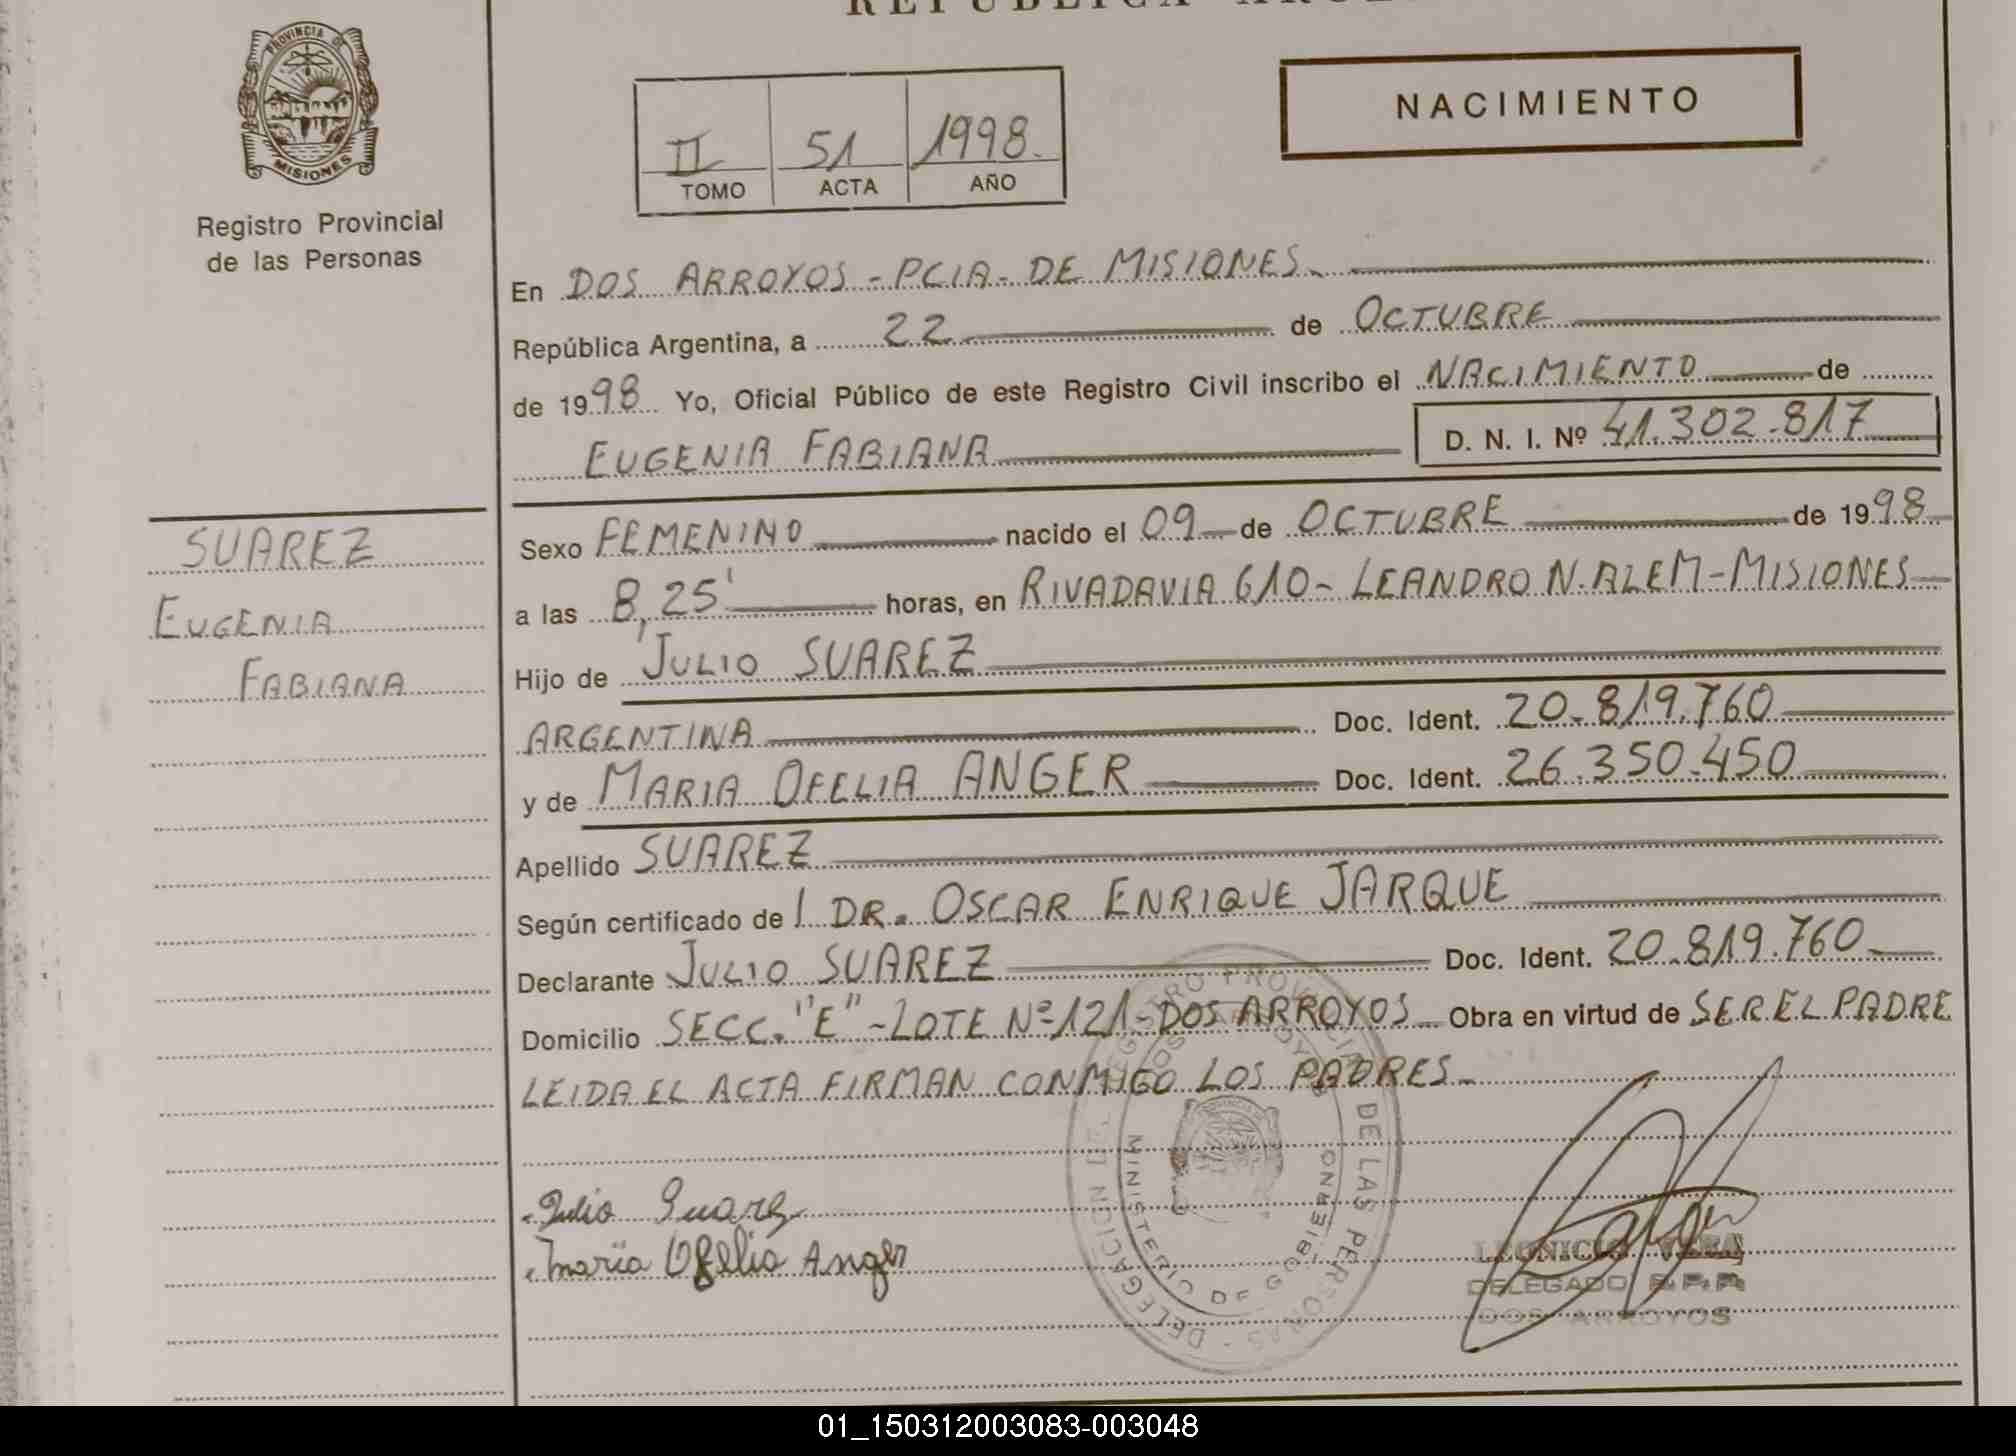 REPUBLICA
PROVINCIA DE
MISIONES
Registro Provincial
de las Personas
NACIMIENTO
II 51 1998.
TOMO ACTA AÑO
En DOS ARROYOS - PCIA - DE MISIONES.
República Argentina, a 22 de OCTUBRE
de 1998 Yo, Oficial Público de este Registro Civil inscribo el NACIMIENTO de
EUGENIA FABIANA D. N. I. Nº 41.302.817
SUAREZ
EUGENIA
FABIANA
Sexo FEMENINO nacido el 09 de OCTUBRE de 1998
a las 8,25' horas, en RIVADAVIA 610 - LEANDRO N. ALEM - MISIONES
Hijo de JULIO SUAREZ
ARGENTINA Doc. Ident. 20.819.760
y de MARIA OFELIA ANGER Doc. Ident. 26.350.450
Apellido SUAREZ
Según certificado de l DR. OSCAR ENRIQUE JARQUE
Declarante JULIO SUAREZ Doc. Ident. 20.819.760
Domicilio SECC. "E" - LOTE Nº 121 - DOS ARROYOS Obra en virtud de SER EL PADRE
LEIDA EL ACTA FIRMAN CONMIGO LOS PADRES -
Julio Suarez
Maria Ofelia Anger
REGISTRO PROVINCIAL DE LAS PERSONAS - DELEGACION
DOS ARROYOS
MINISTERIO DE GOBIERNO
LEONICIO VERA
DELEGADO R. P. P.
DOS ARROYOS
01_150312003083-003048